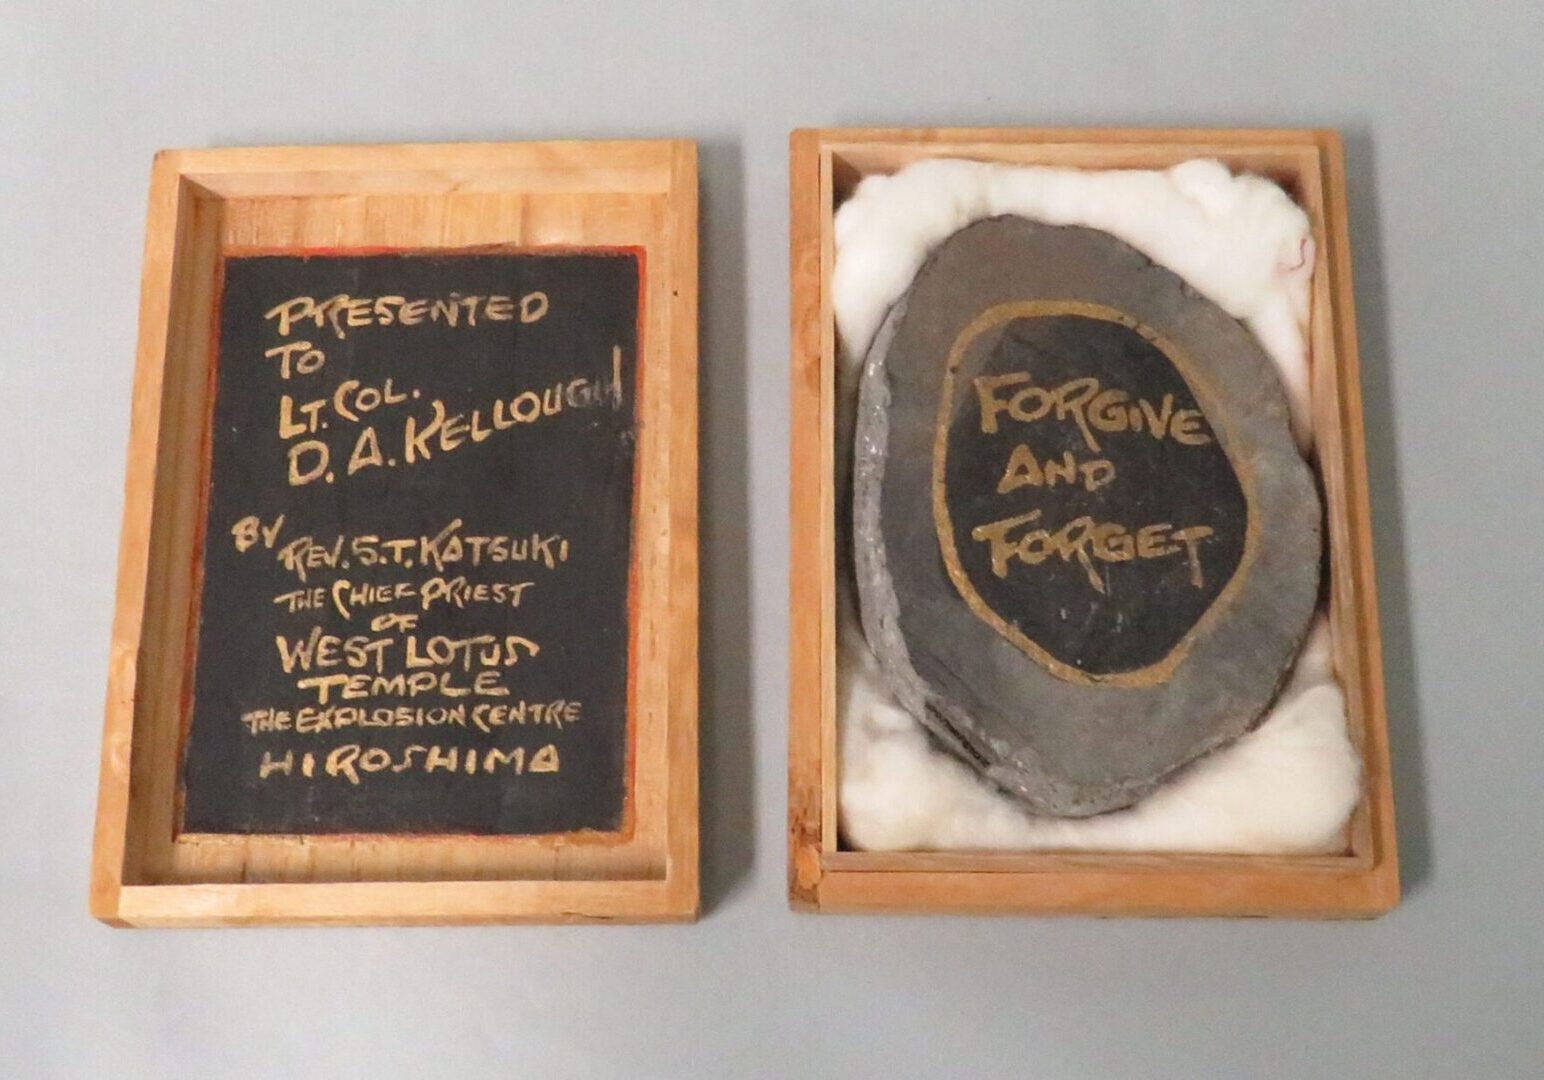 PRESENTED
TO
LT. COL.
D. A. KELLOUGH
BY
REV. S. T. KATSUKI
THE CHIEF PRIEST
OF
WEST LOTUS
TEMPLE
THE EXPLOSION CENTRE
HIROSHIMA
FORGIVE
AND
FORGET